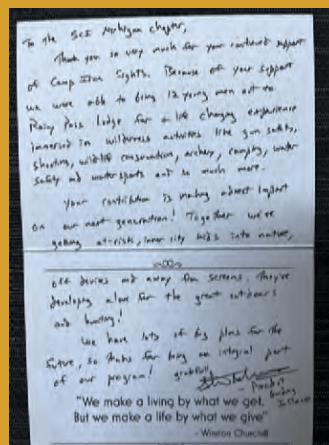 To the SCI Michigan Chapter,
Thank you so very much for your continued support
of Camp Iron Sights. Because of your support
we were able to bring 12 young men out to
Rainy Pass Lodge for a life changing experience
immersed in wilderness activities like gun safety,
shooting, wildlife conservation, archery, camping, water
safety and watersports and so much more.
Your contribution is making a direct impact
on our next generation! Together we're
getting at-risk, inner city kids into nature,
off devices and away from screens. They're
developing a love for the great outdoors
and hunting!
We have lots of big plans for the
future, so thanks for being an integral part
of our program! grateful!
President
"We make a living by what we get,
But we make a life by what we give"
- Winston Churchill